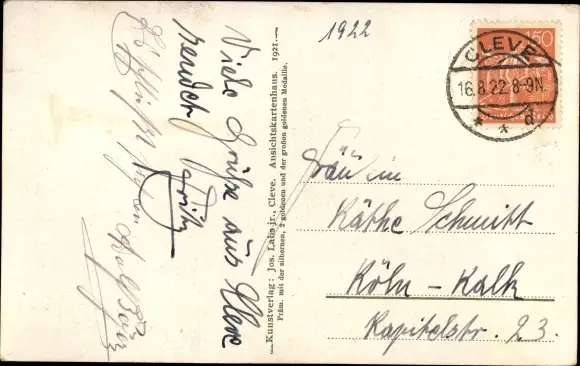 1922
150
CLEVE
16.8.22.8-9N.
* * d
Viele Grüße aus Cleve
sendet Fritz
Kunstverlag: Jos. Labs jr., Cleve. Ansichtskartenhaus. 1921.
Präm. mit der silbernen, 2 goldenen und der großen goldenen Medaille.
Fräulein
Käthe Schmitt
Köln - Kalk
Kapitelstr. 23.